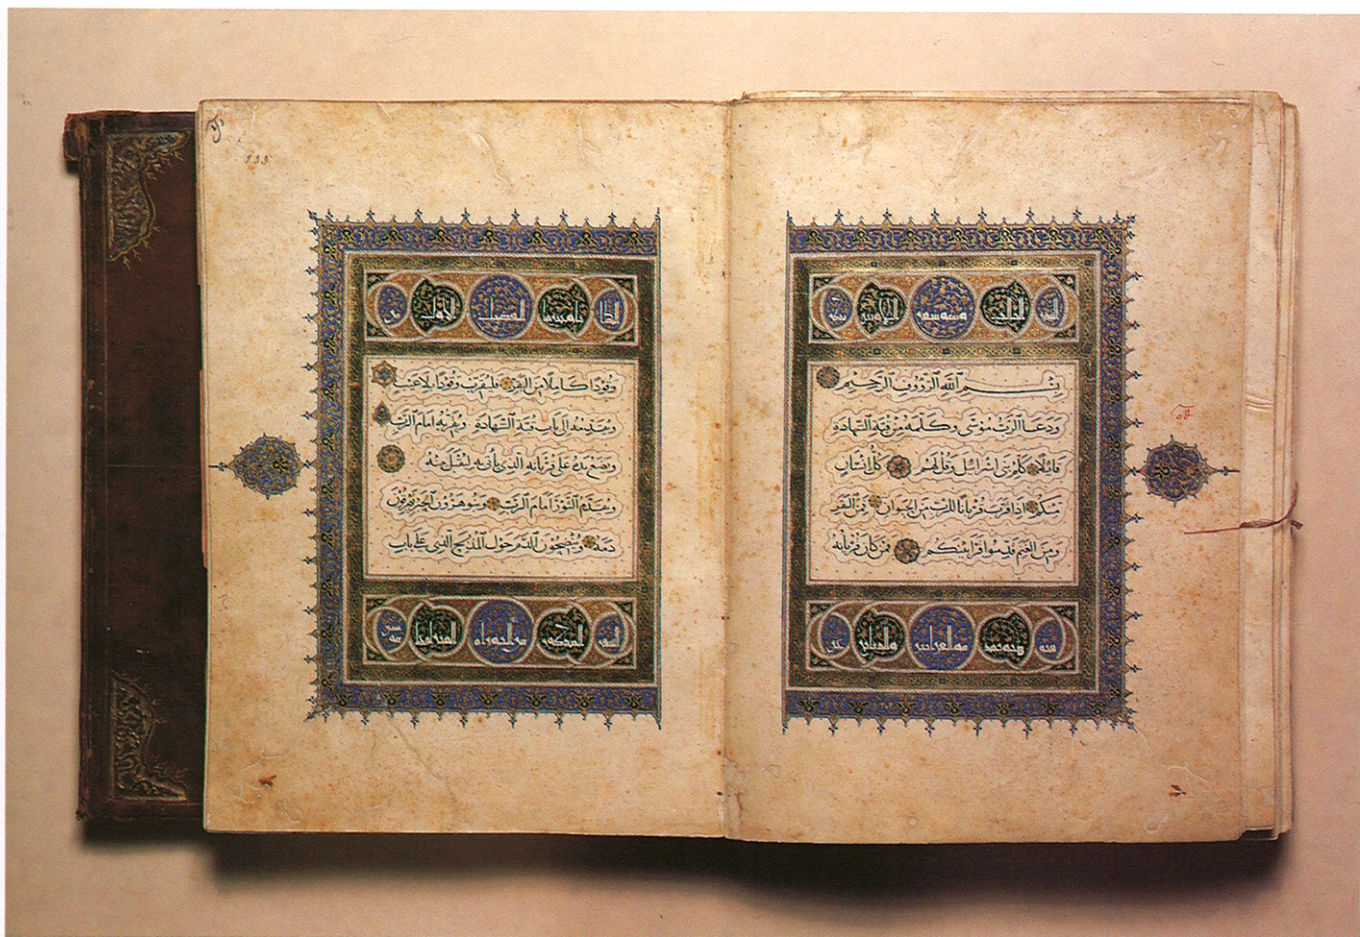 السفر الثالث
بِسْمِ اللَّهِ الرَّؤُوفِ الرَّحِيمِ
ودعا الرب موسى وكلمه من قبة الشهادة
قائلا كلم بني اسرائيل وقل لهم كل انسان
منكم اذا قرب قربانا للرب من الحيوان فمن البقر
ومن الغنم قدموا قرابينكم فمن كان قربانه
الفصل الأول من
وقودا كاملا من البقر فليقرب وقودا بلا عيب
ويقدمه الى باب قبة الشهادة ويقربه امام الرب
ويضع يده على قربانه الذي يأتي به ليقبل منه
ويقدم الثور امام الرب وبنو هرون الحبر يقربون
دمه وينضحون الدم حول المذبح الذي على باب
السفر المذكور من التوراه